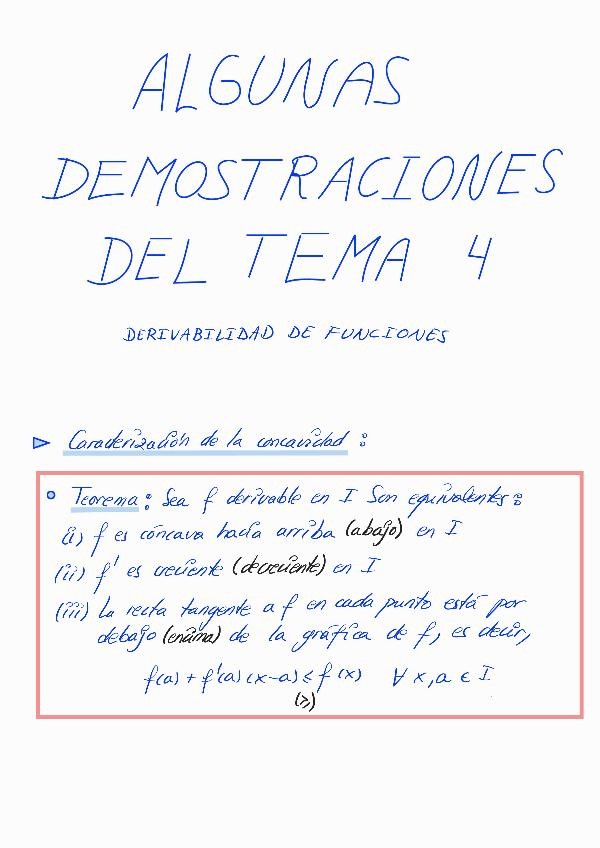 ALGUNAS
DEMOSTRACIONES
DEL TEMA 4
DERIVABILIDAD DE FUNCIONES
Caracterización de la concavidad :
• Teorema: Sea f derivable en I Son equivalentes:
(i) f es cóncava hacia arriba (abajo) en I
(ii) f' es creciente (decreciente) en I
(iii) La recta tangente a f en cada punto está por
debajo (encima) de la gráfica de f, es decir,
f(a) + f'(a) (x-a) ≤ f(x) ∀ x, a ∈ I
(≥)